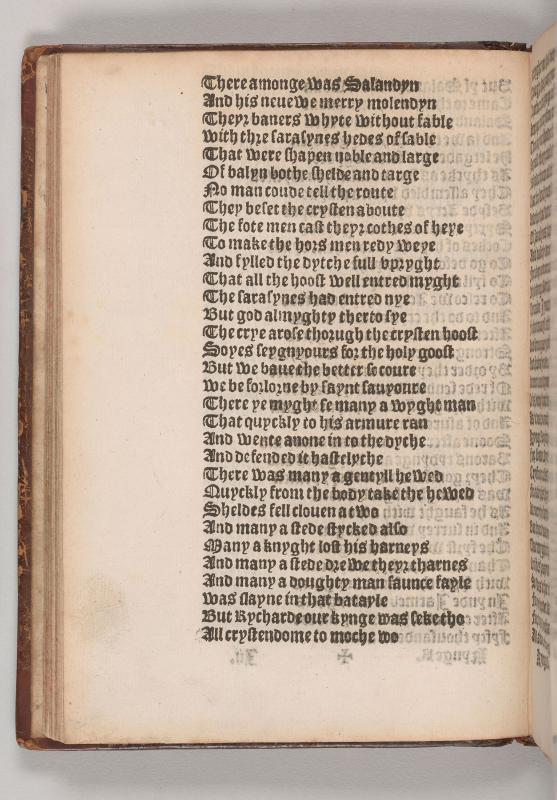 There amonge was Salandyn
And his neuewe merry molendyn
Theyr baners whyte without fable
with thre sarasynes hedes of sable
That were shapen noble and large
Of balyn bothe shelde and targe
No man coude tell the route
They beset the crysten aboute
The fote men cast theyr cothes of heye
To make the hors men redy weye
And fylled the dytche full vpryght
That all the hoost well entred myght
The sarasynes had entred nye
But god almyghty therto sye
The crye arose thorugh the crysten hoost
Soyes seygnyours for the holy goost
But we haue the better socoure
we be forlorne by saynt sauyoure
There ye myght se many a wyght man
That quyckly to his armure ran
And wente anone in to the dyche
And defended it hastelyche
There was many a gentyll hewed
Quyckly from the body take the hewed
Sheldes fell clouen a two
And many a stede stycked also
Many a knyght lost his harneys
And many a stede drewe theyr tharnes
And many a doughty man saunce fayle
was slayne in that batayle
But Rycharde our kynge was seke tho
All crystendome to moche wo